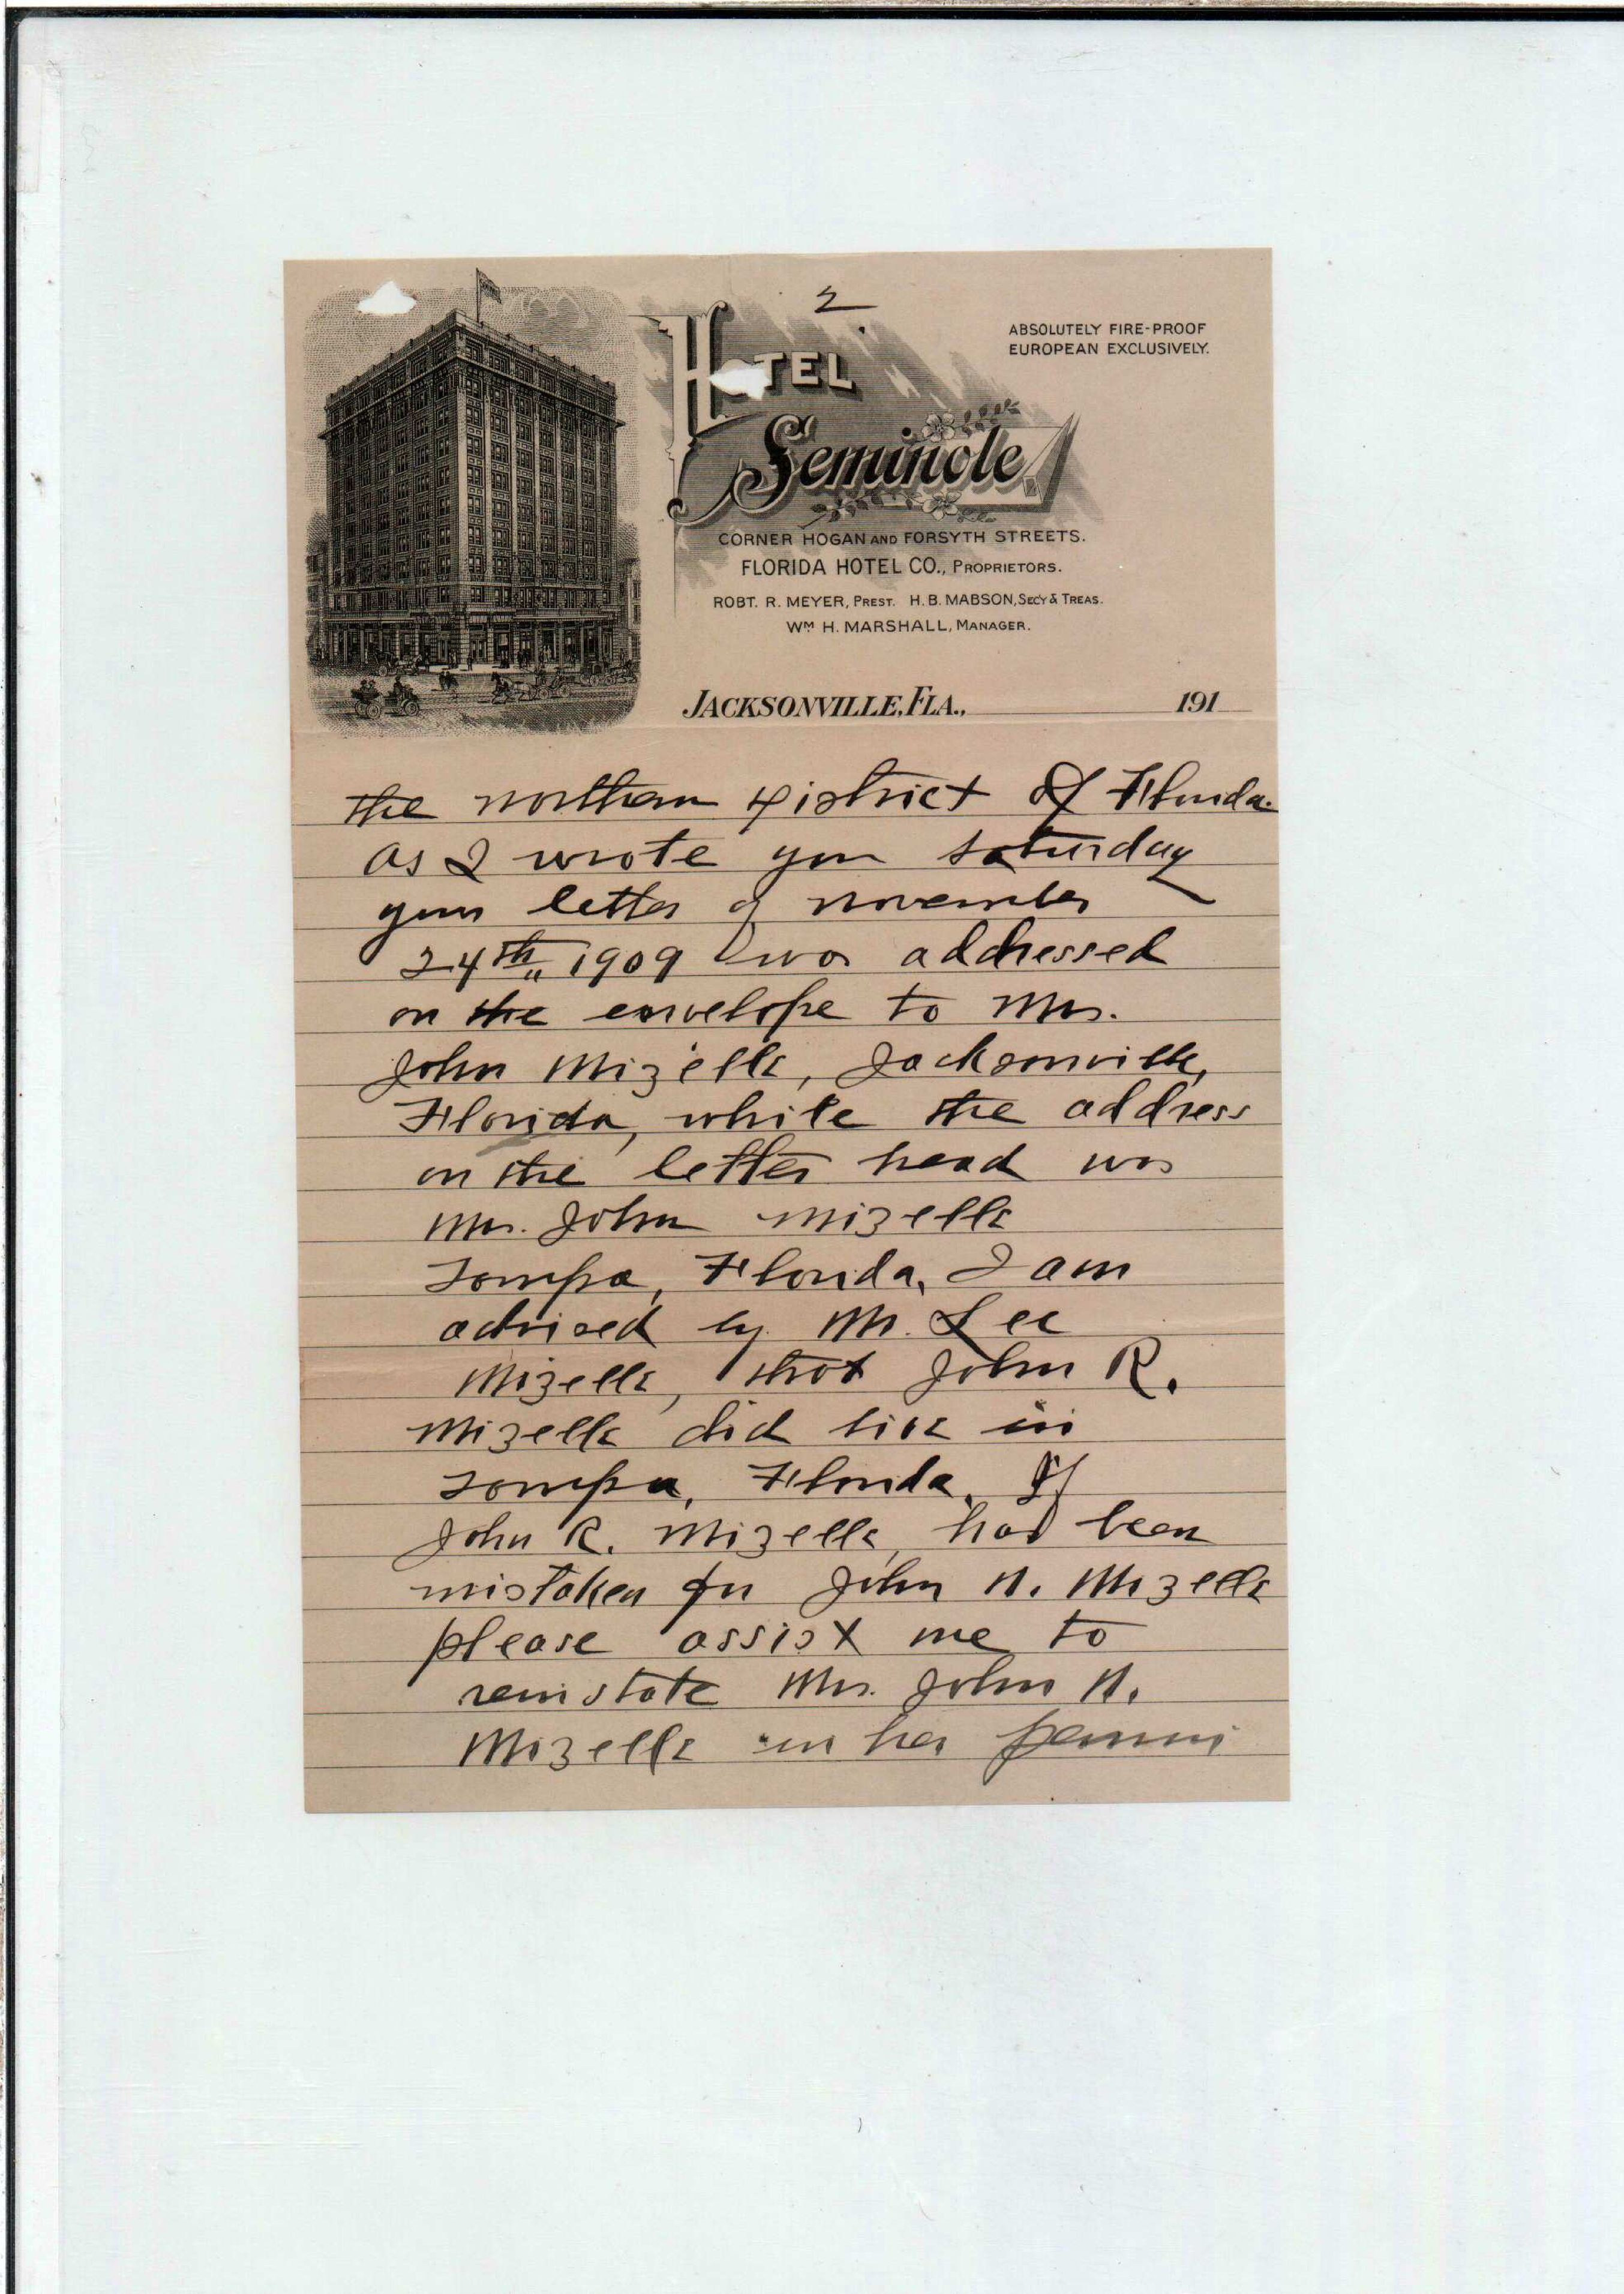 2
ABSOLUTELY FIRE-PROOF
EUROPEAN EXCLUSIVELY.
HOTEL
Seminole
CORNER HOGAN AND FORSYTH STREETS.
FLORIDA HOTEL CO., PROPRIETORS.
ROBT. R. MEYER, PREST. H. B. MABSON, SECY & TREAS.
WM H. MARSHALL, MANAGER.
JACKSONVILLE, FLA., 191
the northern District of Florida.
As I wrote you Saturday
your letter of november
24th 1909 was addressed
on the envelope to Mrs.
John Mizelle, Jacksonville,
Florida, while the address
on the letter head was
Mrs. John Mizelle
Tampa, Florida, I am
advised by Mr. Lee
Mizelle, that John R.
Mizelle did live in
Tampa, Florida. If
John R. Mizelle, had been
mistaken for John N. Mizelle
please assist me to
reinstate Mrs. John N.
Mizelle in her